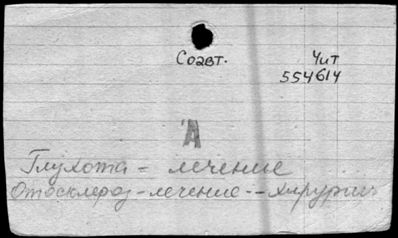 Соавт.
Чит
554614
А
Глухота - лечение
Отосклероз - лечение -- хирургич